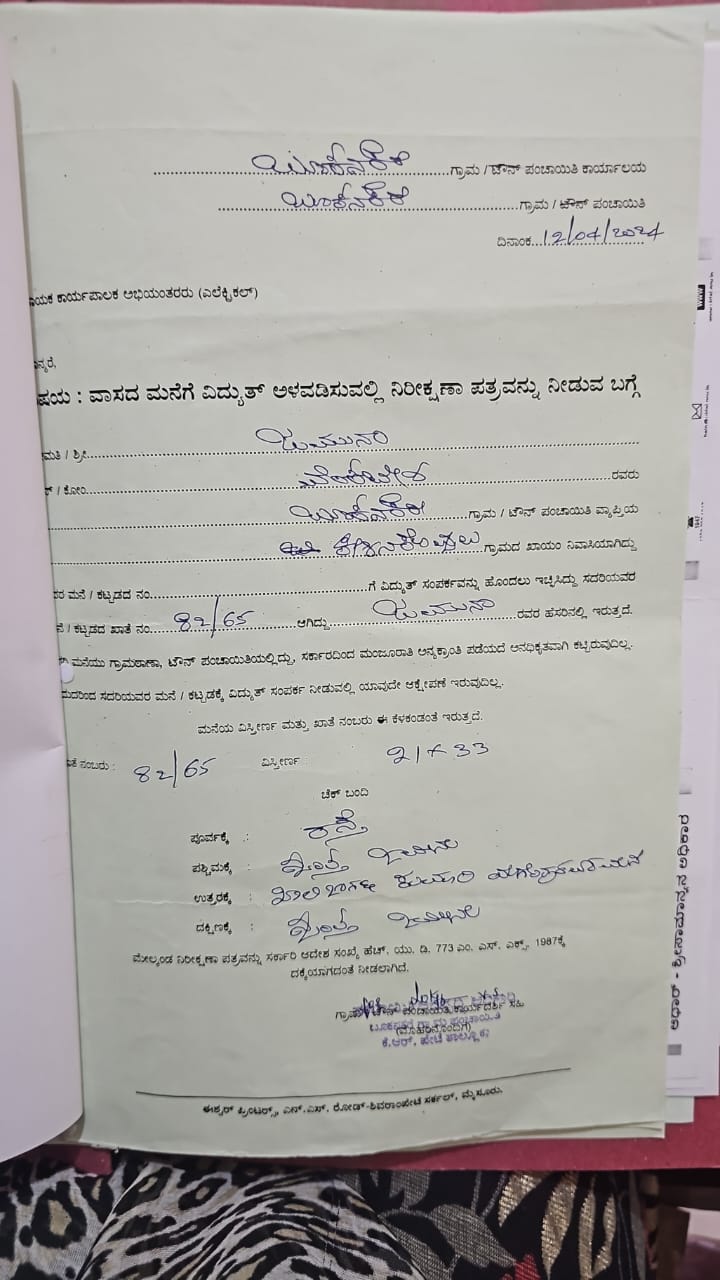 ಬೂಕನಕೆರೆ ಗ್ರಾಮ / ಟೌನ್ ಪಂಚಾಯಿತಿ ಕಾರ್ಯಾಲಯ
ಬೂಕನಕೆರೆ ಗ್ರಾಮ / ಟೌನ್ ಪಂಚಾಯಿತಿ
ದಿನಾಂಕ...12/04/2024
ಕಾರ್ಯಪಾಲಕ ಅಭಿಯಂತರರು (ಎಲೆಕ್ಟ್ರಿಕಲ್)
ನ್ಯರೆ,
ಷಯ : ವಾಸದ ಮನೆಗೆ ವಿದ್ಯುತ್ ಅಳವಡಿಸುವಲ್ಲಿ ನಿರೀಕ್ಷಣಾ ಪತ್ರವನ್ನು ನೀಡುವ ಬಗ್ಗೆ
ಮತಿ / ಶ್ರೀ ಜಮುನಾ
/ ಕೋಂ ವೆಂಕಟೇಶ ರವರು
ಬೂಕನಕೆರೆ ಗ್ರಾಮ / ಟೌನ್ ಪಂಚಾಯಿತಿ ವ್ಯಾಪ್ತಿಯ
ಗ್ರಾಮದ ಖಾಯಂ ನಿವಾಸಿಯಾಗಿದ್ದು
ರ ಮನೆ / ಕಟ್ಟಡದ ನಂ. ಗೆ ವಿದ್ಯುತ್ ಸಂಪರ್ಕವನ್ನು ಹೊಂದಲು ಇಚ್ಛಿಸಿದ್ದು ಸದರಿಯವರ
/ ಕಟ್ಟಡದ ಖಾತೆ ನಂ. 82/65 ಆಗಿದ್ದು ಜಮುನಾ ರವರ ಹೆಸರಿನಲ್ಲಿ ಇರುತ್ತದೆ.
ಮನೆಯು ಗ್ರಾಮಠಾಣಾ, ಟೌನ್ ಪಂಚಾಯಿತಿಯಲ್ಲಿದ್ದು, ಸರ್ಕಾರದಿಂದ ಮಂಜೂರಾತಿ ಅನ್ಯಕ್ರಾಂತಿ ಪಡೆಯದೆ ಅನಧಿಕೃತವಾಗಿ ಕಟ್ಟಿರುವುದಿಲ್ಲ.
ದರಿಂದ ಸದರಿಯವರ ಮನೆ / ಕಟ್ಟಡಕ್ಕೆ ವಿದ್ಯುತ್ ಸಂಪರ್ಕ ನೀಡುವಲ್ಲಿ ಯಾವುದೇ ಆಕ್ಷೇಪಣೆ ಇರುವುದಿಲ್ಲ.
ಮನೆಯ ವಿಸ್ತೀರ್ಣ ಮತ್ತು ಖಾತೆ ನಂಬರು ಈ ಕೆಳಕಂಡಂತೆ ಇರುತ್ತದೆ.
ತೆ ನಂಬರು : 82/65 ವಿಸ್ತೀರ್ಣ : 21 x 33
ಚೆಕ್ ಬಂದಿ
ಪೂರ್ವಕ್ಕೆ : ರಸ್ತೆ
ಪಶ್ಚಿಮಕ್ಕೆ :
ಉತ್ತರಕ್ಕೆ :
ದಕ್ಷಿಣಕ್ಕೆ :
ಮೇಲ್ಕಂಡ ನಿರೀಕ್ಷಣಾ ಪತ್ರವನ್ನು ಸರ್ಕಾರಿ ಆದೇಶ ಸಂಖ್ಯೆ ಹೆಚ್. ಯು. ಡಿ. 773 ಎಂ. ಎಸ್. ಎಕ್ಸ್. 1987ಕ್ಕೆ
ದಕ್ಕೆಯಾಗದಂತೆ ನೀಡಲಾಗಿದೆ.
ಗ್ರಾಮ / ಟೌನ್ ಪಂಚಾಯಿತಿ ಕಾರ್ಯದರ್ಶಿ ಸಹಿ
(ಮೊಹರಿನೊಂದಿಗೆ)
ಕೆ.ಆರ್. ಪೇಟೆ ತಾಲ್ಲೂಕು
ಈಶ್ವರ್ ಪ್ರಿಂಟರ್ಸ್, ಎನ್.ಎಸ್. ರೋಡ್-ಶಿವರಾಂಪೇಟೆ ಸರ್ಕಲ್, ಮೈಸೂರು.
ಆಧಾರ್ - ಶ್ರೀಸಾಮಾನ್ಯನ ಅಧಿಕಾರ